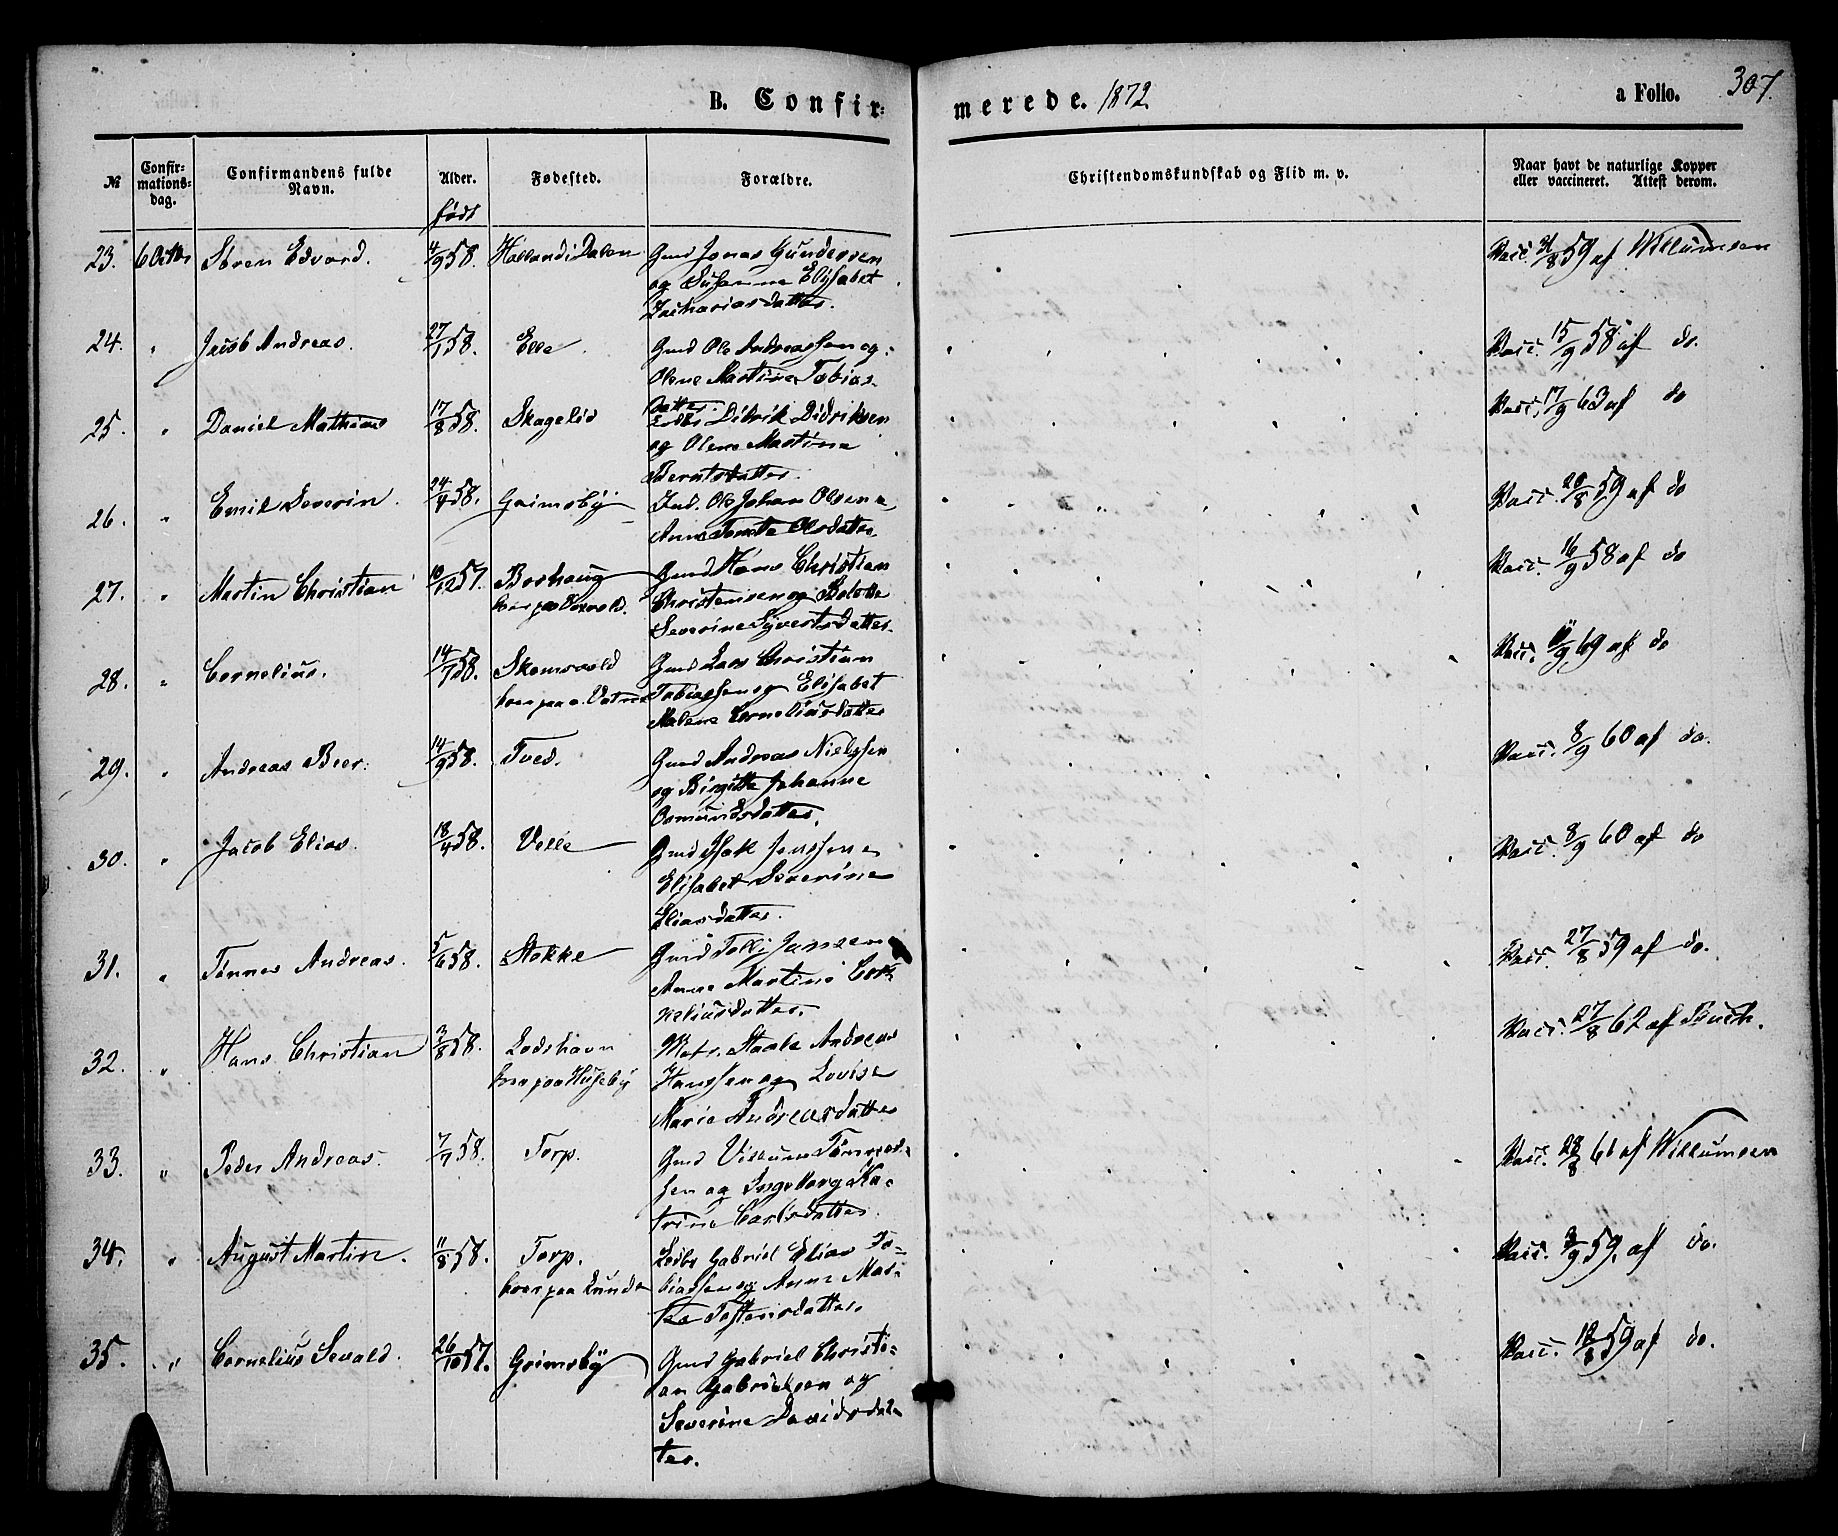 B. Confir=
merede. 1872
a Folio. 307.
№
Confir=
mations=
dag.
Confirmandens fulde
Navn.
Alder.
født
Fødested.
Forældre.
Christendomskundskab og Flid m. v.
Naar havt de naturlige Kopper
eller vaccineret. Attest derom.
23. 6 Octbr Søren Edvard. 4/9 58. Holland i Dalen Gmd Jonas Gundersen
og Susanne Elisabet
Zachariasdatter.
Vacc. 31/8 59 af Willumsen
24. " Jacob Andreas. 27/1 58. Elle Gmd Ole Andreassen og
Olene Martine Tobias
datter.
Vacc. 15/9 58 af do.
25. " Daniel Mathias 17/8 58. Skagelid Didrik Didriksen
og Olene Martine
Berntsdatter.
Vacc. 17/9 63 af do
26. " Emil Severin. 24/4 58. Grimsby Ind. Ole Johan Olsen
Anne Tomette Olsdatter.
Vacc. 20/8 59 af do
27. " Martin Christian 10/12 57. Boshaug Gmd Hans Christian
Christensen og Bolette
Severine Syvertsdatter.
Vacc. 16/9 58 af do
28. " Cornelius. 14/7 58. Gmd Lars Christian
Tobiassen og Elisabet
Malene Corneliusdatter
Vacc. 11/9 69 af do
29. " Andreas Beer. 14/9 58. Tved. Gmd Andreas Nielssen
og Birgitte Johanne
Osmundsdatter.
Vacc. 8/9 60 af do.
30. " Jacob Elias. 18/4 58. Velle Gmd Isak Jenssen
Elisabet Severine
Eliasdatter.
Vacc. 8/9 60 af do
31. " Tønnes Andreas. 5/6 58. Stokke Gmd Jansen
Anne Martine Cor=
neliusdatter.
Vacc. 27/8 59 af do.
32. " Hans Christian 3/8 58. Lodshavn
boer paa Huseby
Matr. Staale Andreas
Hanssen og Lovise
Marie Andreasdatter
Vacc. 27/8 62 af Buch.
33. " Peder Andreas. 7/7 58. Torp. Gmd Villum Tønnes=
sen og Ingeborg Ka=
trine Carlsdatter.
Vacc. 28/8 61 af Willumsen
34. " August Martin. 11/8 58. Torp.
boer paa Lunde
Lods Gabriel Elias To=
biassen og Anne Mar=
Vacc. 3/9 59. af do.
35. " Cornelius Sevald. 26/10 57. Grimsby Gmd Gabriel Christi=
an Gabrielsen og
Severine Davidsdat=
ter.
Vacc. 18/8 59 af do.